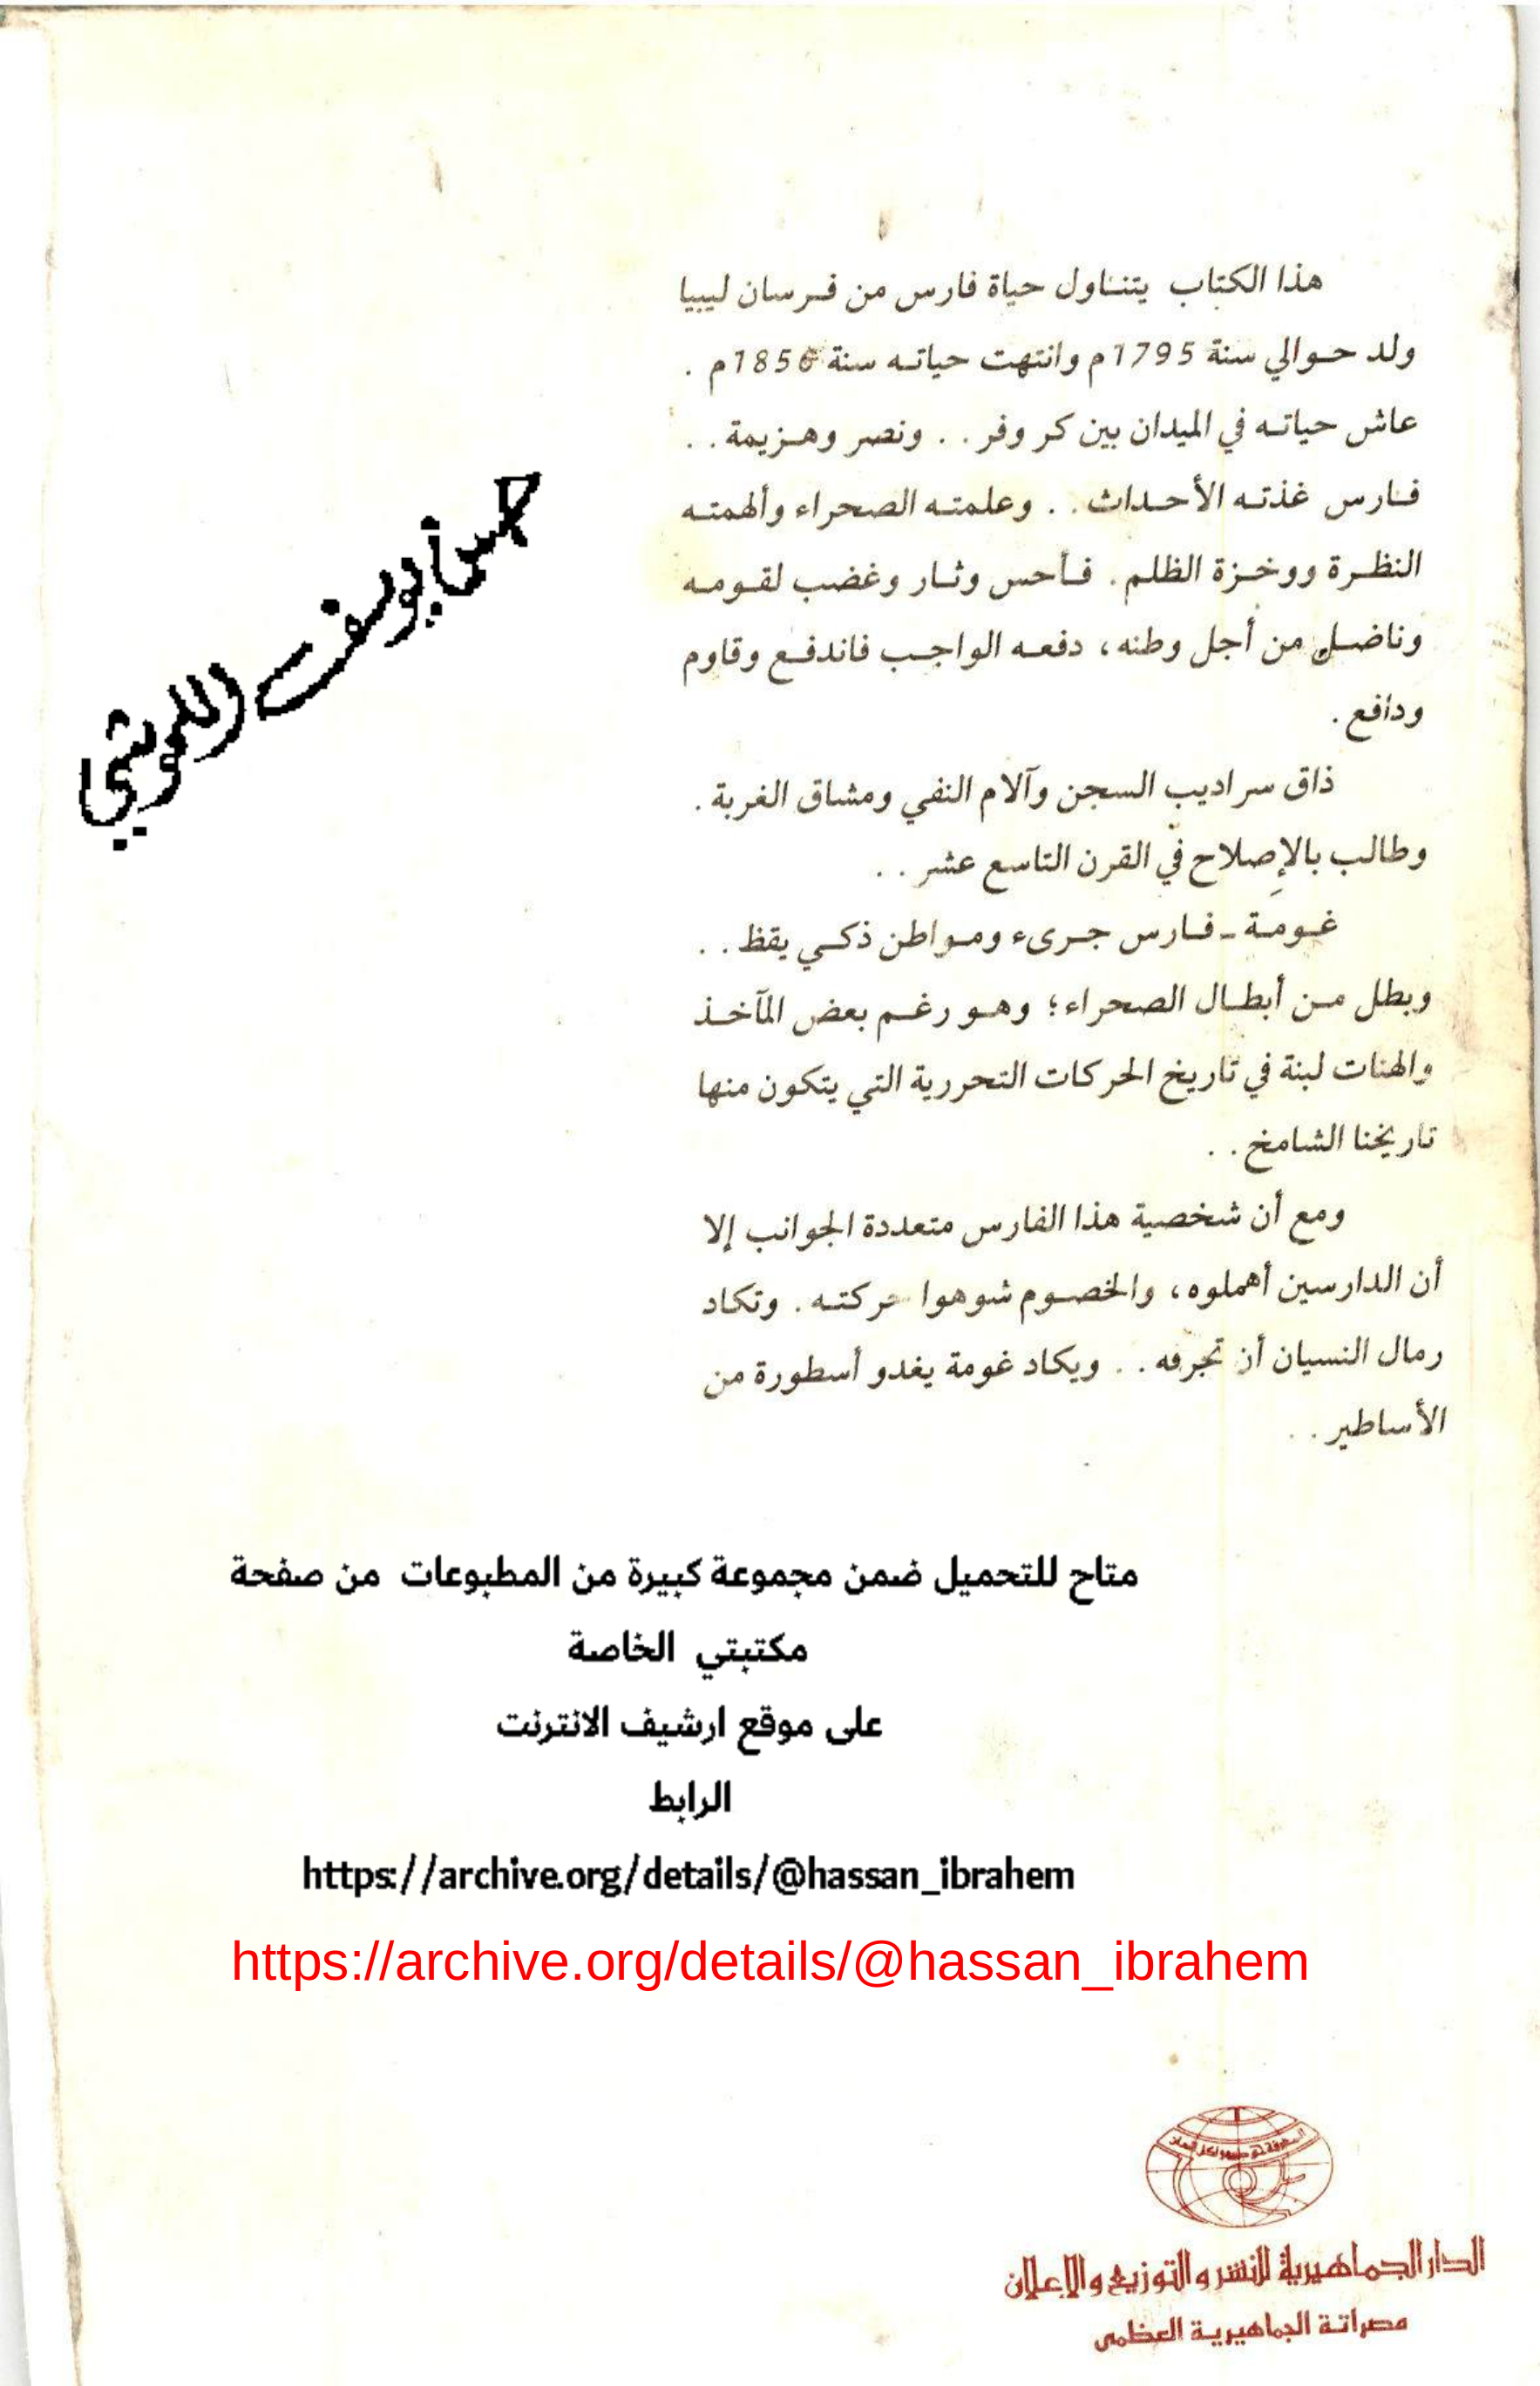 هذا الكتاب يتناول حياة فارس من فرسان ليبيا
ولد حوالي سنة 1795م وانتهت حياته سنة 1856م .
عاش حياته في الميدان بين كر وفر . . ونصر وهزيمة . .
فارس غذته الأحداث . . وعلمته الصحراء وألهمته
النظرة ووخزة الظلم . فأحس وثار وغضب لقومه
وناضل من أجل وطنه ، دفعه الواجب فاندفع وقاوم
ودافع .
ذاق سراديب السجن وآلام النفي ومشاق الغربة .
وطالب بالإصلاح في القرن التاسع عشر . .
غومة - فارس جرىء ومواطن ذكي يقظ . .
وبطل من أبطال الصحراء ؛ وهو رغم بعض المآخذ
والهنات لبنة في تاريخ الحركات التحررية التي يتكون منها
تاريخنا الشامخ . .
ومع أن شخصية هذا الفارس متعددة الجوانب إلا
أن الدارسين أهملوه ، والخصوم شوهوا حركته . وتكاد
رمال النسيان أن تجرفه . . ويكاد غومة يغدو أسطورة من
الأساطير . .
متاح للتحميل ضمن مجموعة كبيرة من المطبوعات من صفحة
مكتبتي الخاصة
على موقع ارشيف الانترنت
الرابط
https://archive.org/details/@hassan_ibrahem
https://archive.org/details/@hassan_ibrahem
الدار الجماهيرية للنشر والتوزيع والإعلان
مصراتة الجماهيرية العظمى